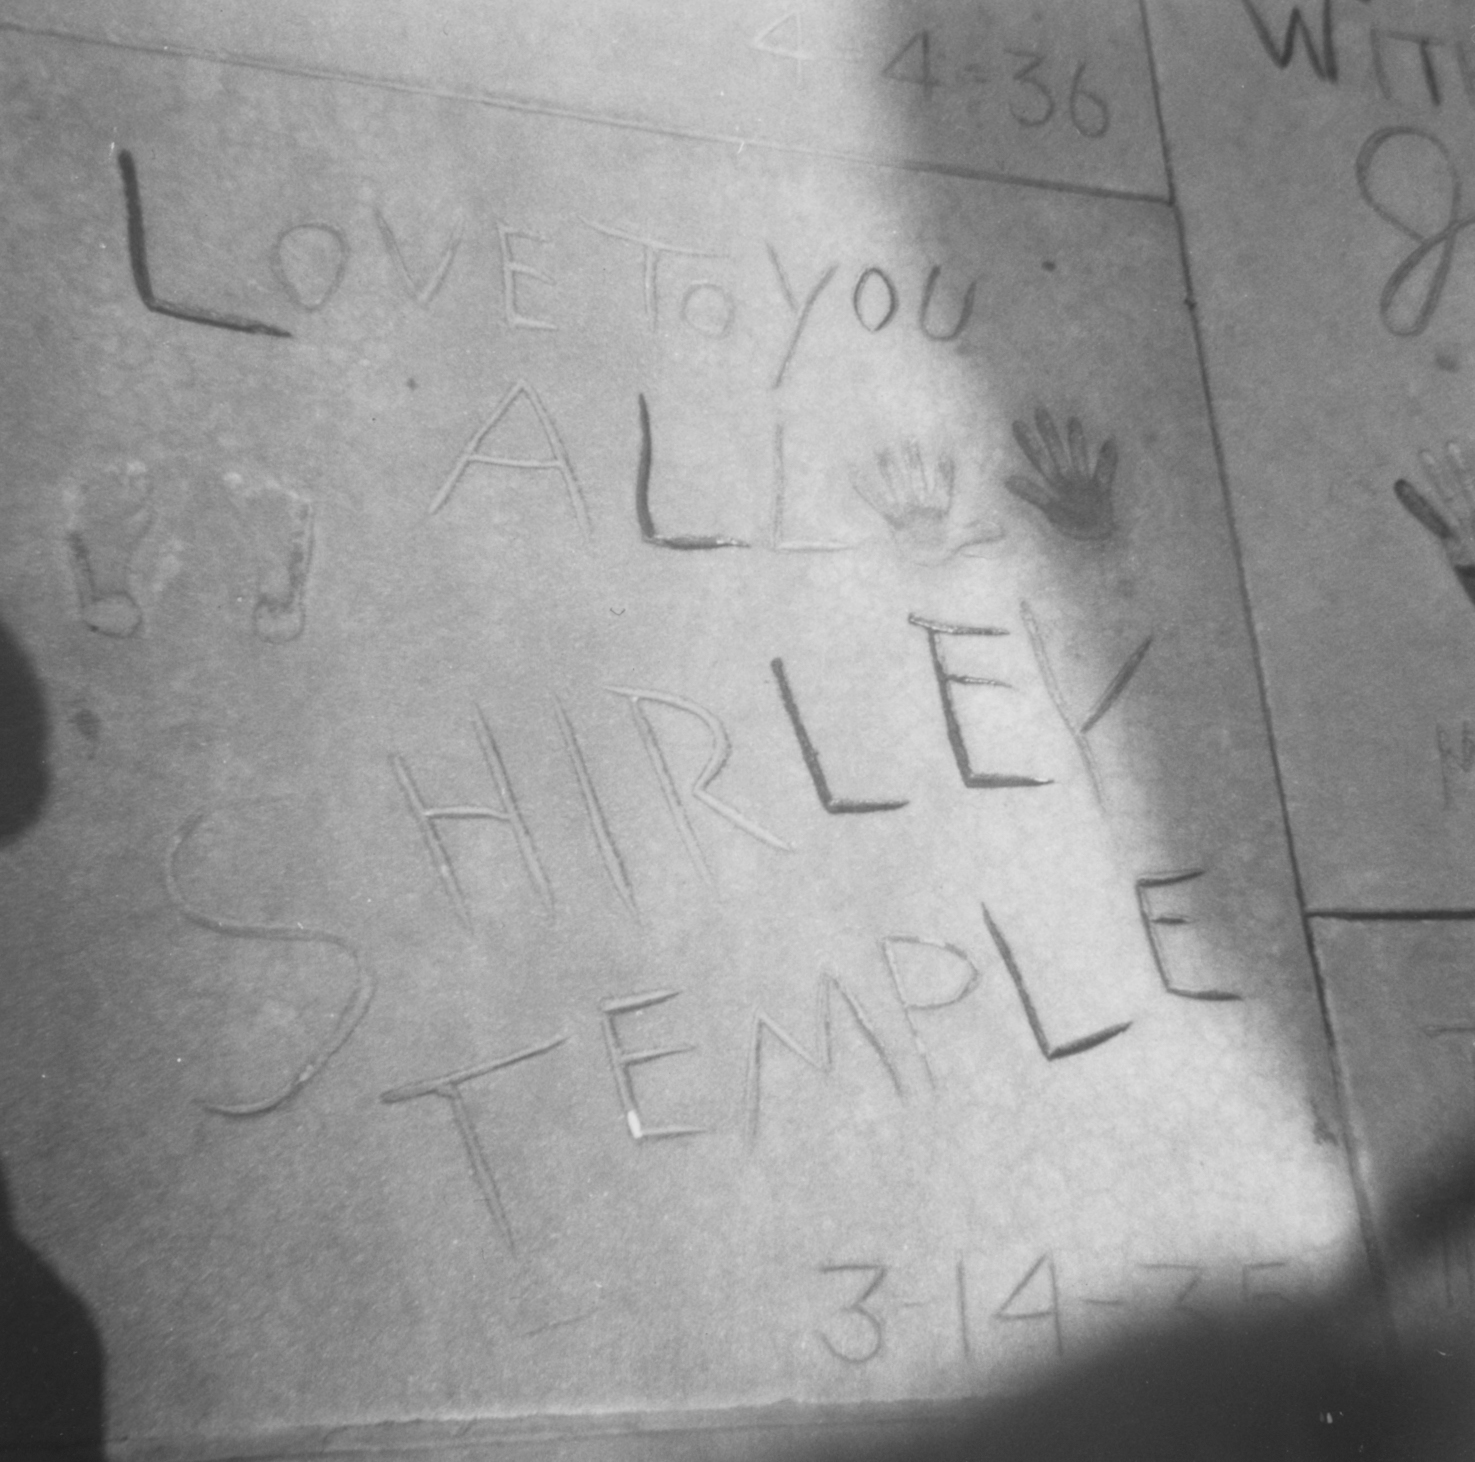 4-4-36
WITH
LOVE TO YOU
ALL
SHIRLEY
TEMPLE
3-14-35